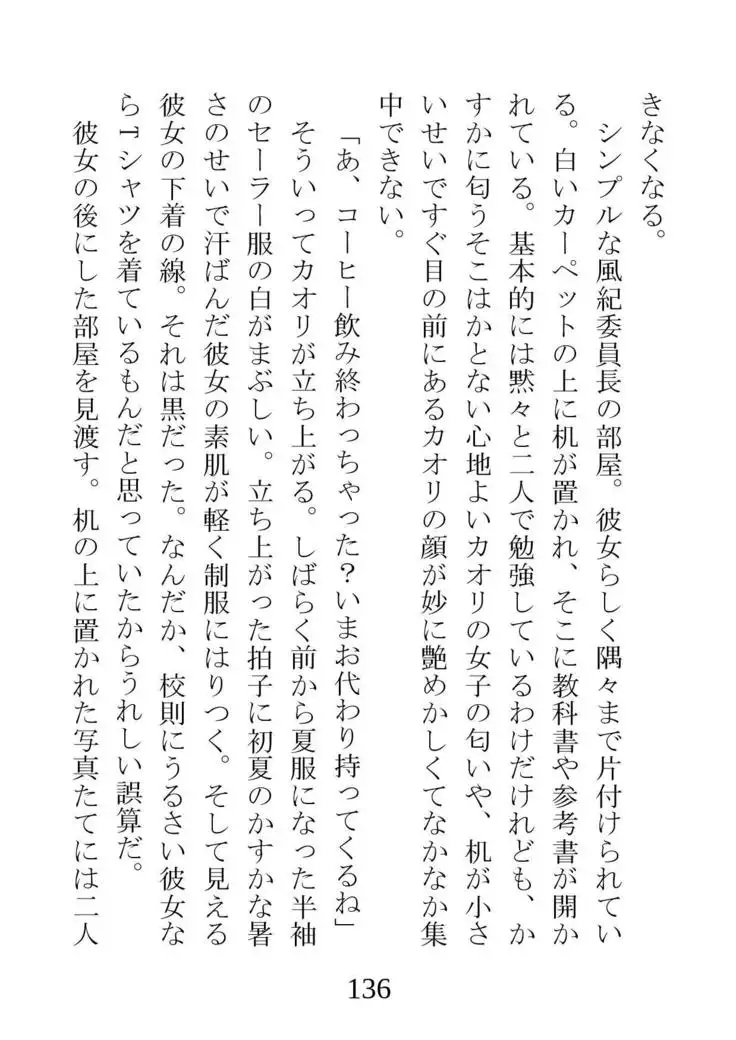 きなくなる。
　シンプルな風紀委員長の部屋。彼女らしく隅々まで片付けられてい
る。白いカーペットの上に机が置かれ、そこに教科書や参考書が開か
れている。基本的には黙々と二人で勉強しているわけだけれども、か
すかに匂うそこはかとない心地よいカオリの女子の匂いや、机が小さ
いせいですぐ目の前にあるカオリの顔が妙に艶めかしくてなかなか集
中できない。
「あ、コーヒー飲み終わっちゃった？いまお代わり持ってくるね」
　そういってカオリが立ち上がる。しばらく前から夏服になった半袖
のセーラー服の白がまぶしい。立ち上がった拍子に初夏のかすかな暑
さのせいで汗ばんだ彼女の素肌が軽く制服にはりつく。そして見える
彼女の下着の線。それは黒だった。なんだか、校則にうるさい彼女な
らTシャツを着ているもんだと思っていたからうれしい誤算だ。
　彼女の後にした部屋を見渡す。机の上に置かれた写真たてには二人
136